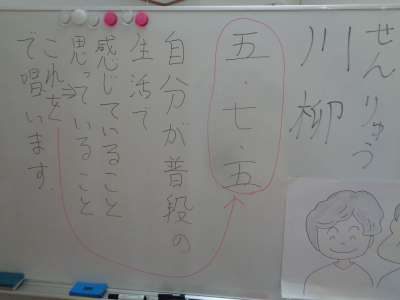 せんりゅう
川柳
五・七・五
自分が普段の
生活で
感じていること
思っていること
これを
で唱います。